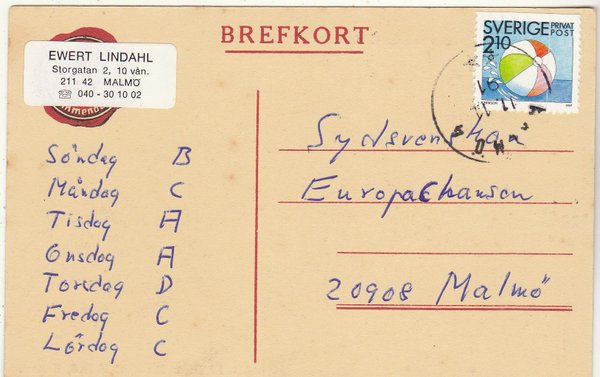 BREFKORT
SVERIGE PRIVAT POST
2.10
EWERT LINDAHL
Storgatan 2, 10 vån.
211 42 MALMÖ
☎ 040 - 30 10 02
Söndag B
Måndag C
Tisdag A
Onsdag A
Torsdag D
Fredag C
Lördag C
Sydsvenskan
Europachansen
20908 Malmö